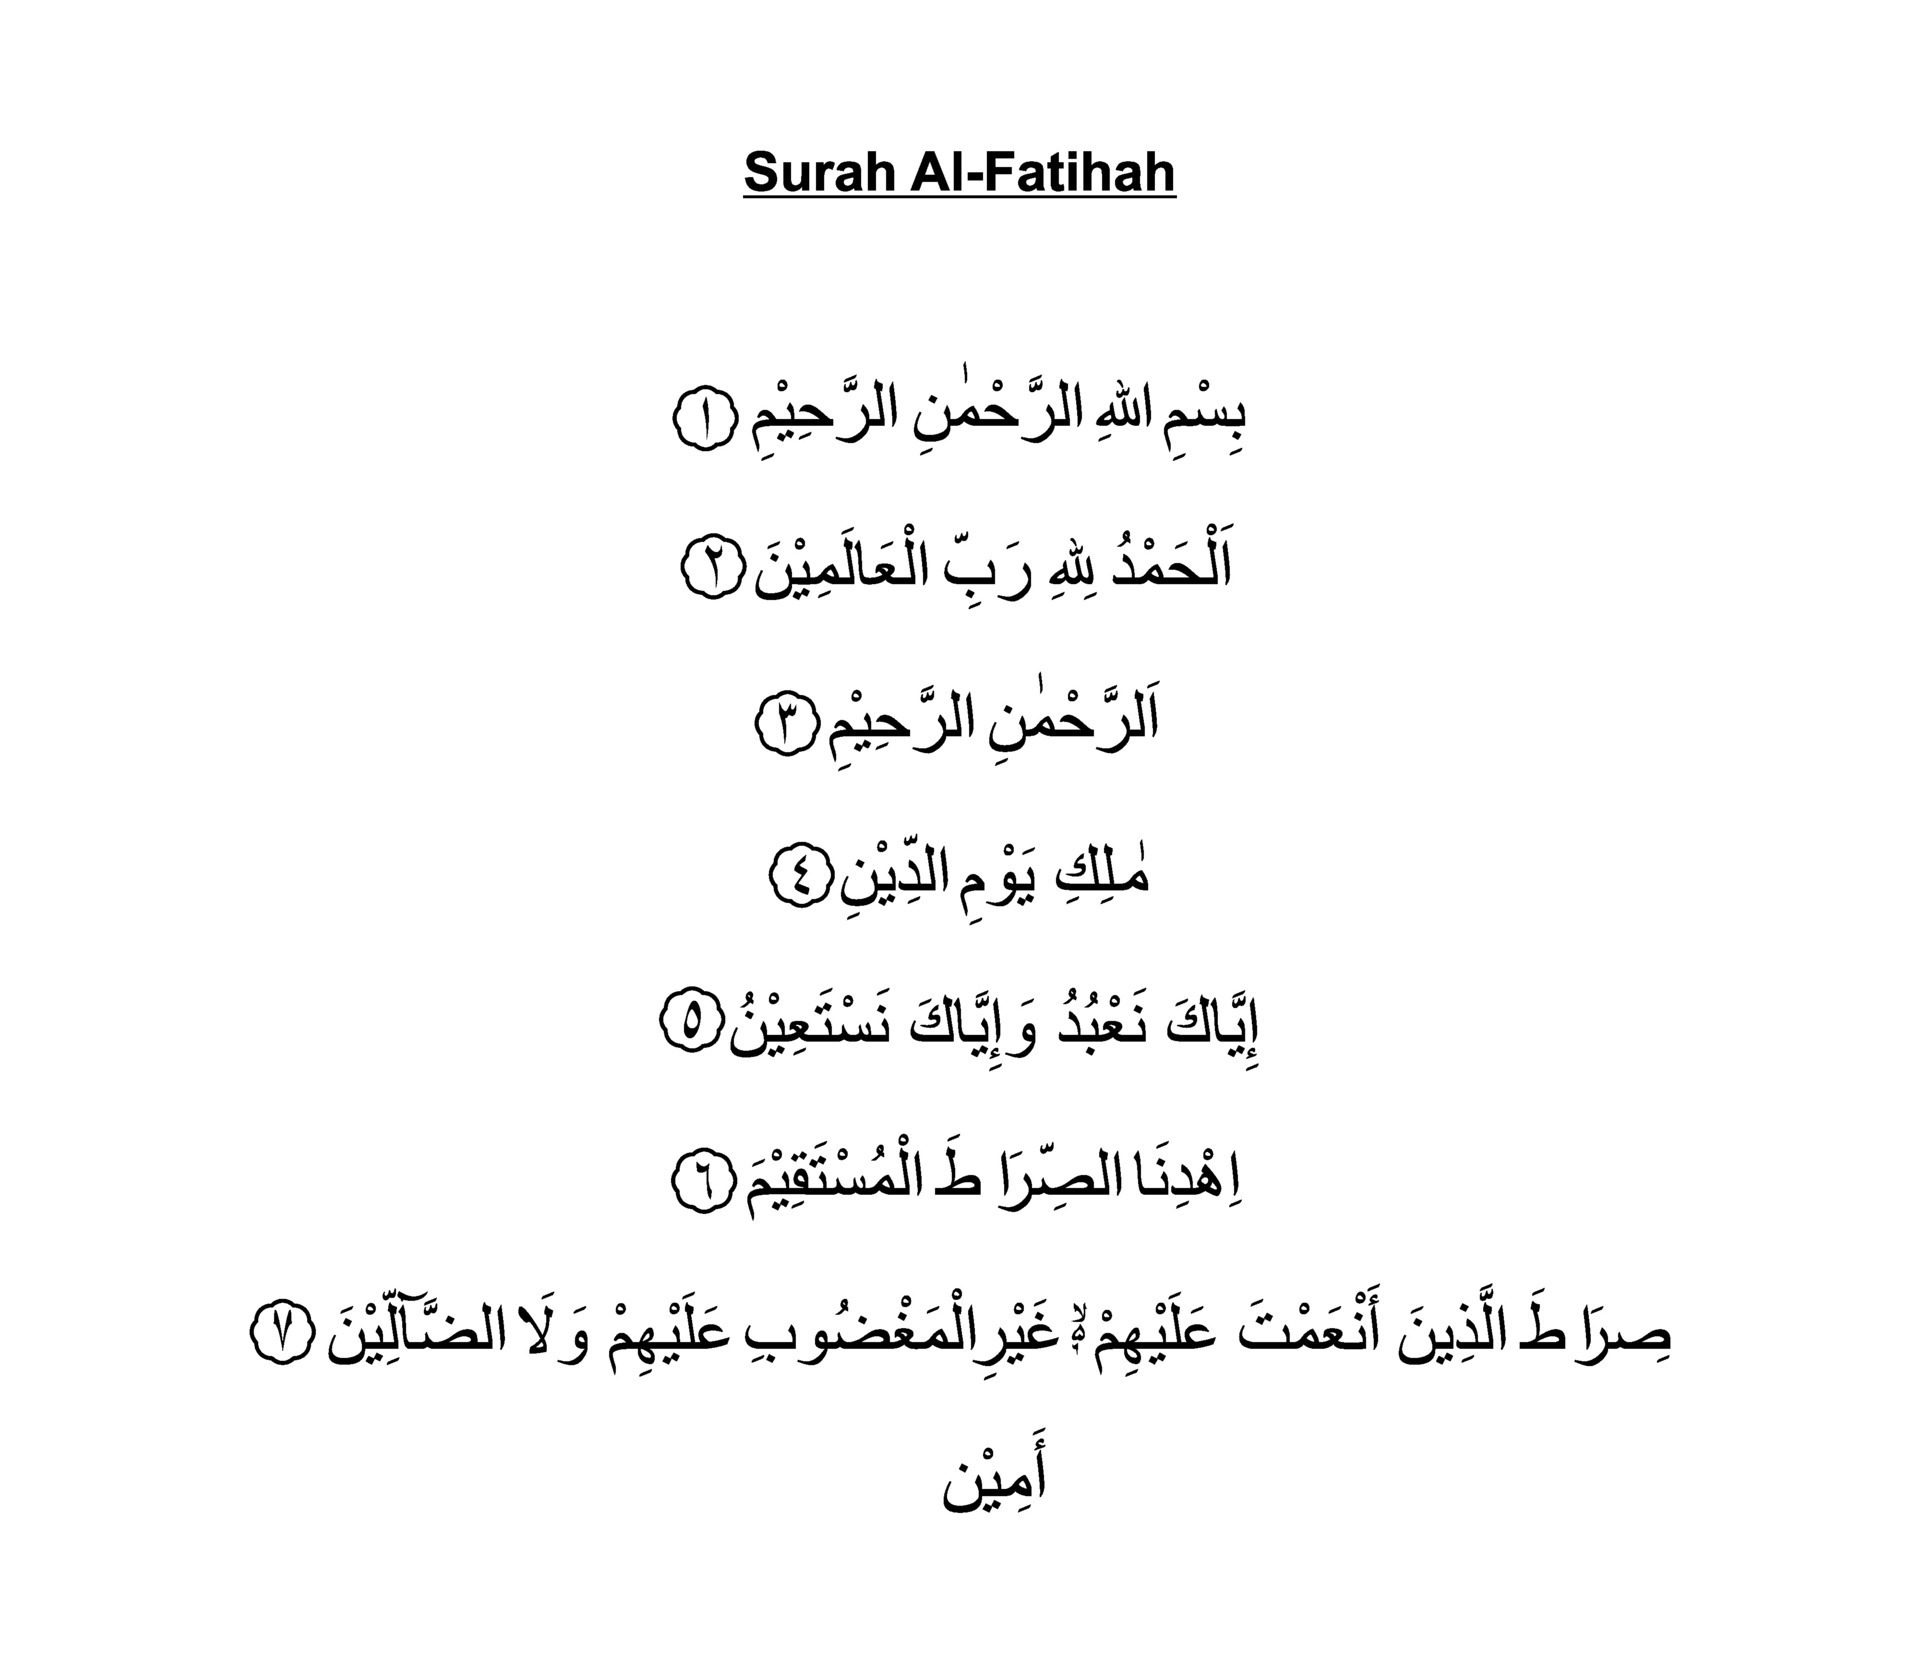 Surah Al-Fatihah
بِسْمِ اللهِ الرَّحْمٰنِ الرَّحِيْمِ ۝١
اَلْحَمْدُ لِلهِ رَبِّ الْعَالَمِيْنَ ۝٢
اَلرَّحْمٰنِ الرَّحِيْمِ ۝٣
مٰلِكِ يَوْمِ الدِّيْنِ ۝٤
إِيَّاكَ نَعْبُدُ وَإِيَّاكَ نَسْتَعِيْنُ ۝٥
اِهْدِنَا الصِّرَا طَ الْمُسْتَقِيْمَ ۝٦
صِرَا طَ الَّذِينَ أَنْعَمْتَ عَلَيْهِمْ ۙ۬ غَيْرِالْمَغْضُوبِ عَلَيْهِمْ وَلَا الضَّآلِّيْنَ ۝٧
أَمِيْن